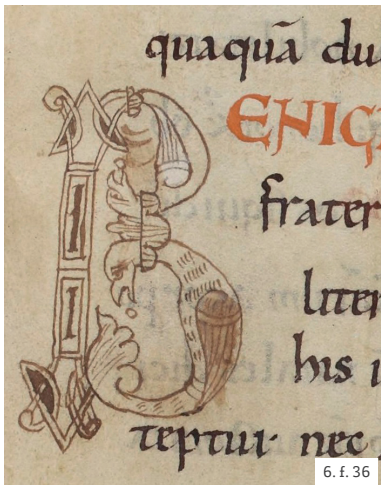 quaquā du
BENIGN
frater
liter
his i
teptur nec
6. f. 36